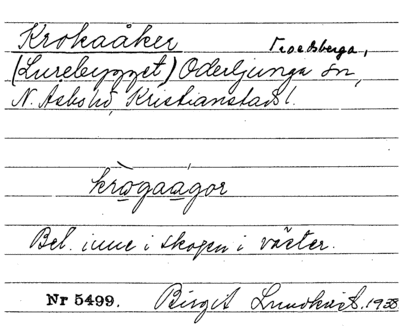 Krokaåker Troedsberga,
(Lurebygget) Oderljunga sn,
N. Åsbo hd, Kristianstads l.
krògaágor
Bel. inne i skogen i väster.
Nr 5499. Birgit Lundkvist. 1938